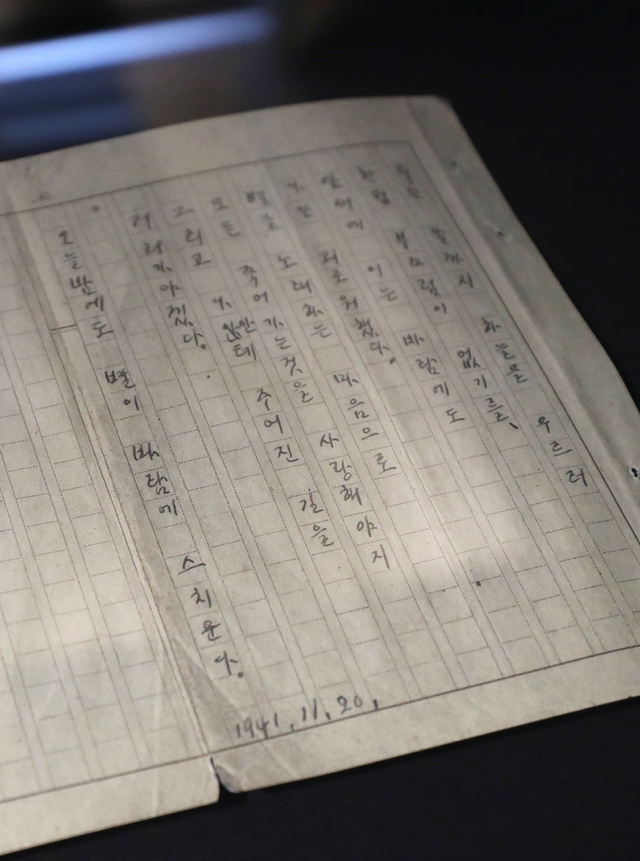 죽는 날까지 하늘을 우르러
한점 부끄럼이 없기를、
잎새에 이는 바람에도
나는 괴로워했다.
별을 노래하는 마음으로
모든 죽어가는것을 사랑해야지
그리고 나안테 주어진 길을
거러가야겠다.
오늘밤에도 별이 바람에 스치운다.
1941.11.20.